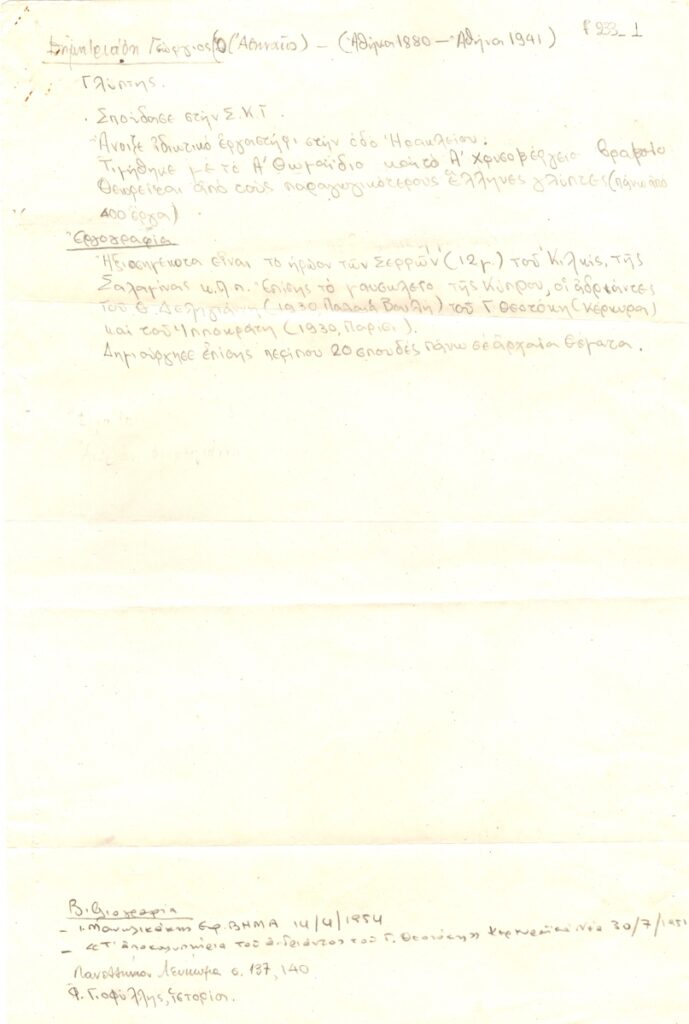 Δημητριάδη Γεώργιος (Ο Ἀθηναῖος) – (Ἀθήνα 1880 – Ἀθήνα 1941)
Γλύπτης.
Σπούδασε στὴν Σ.Κ.Τ.
Ἄνοιξε ἰδιωτικὸ ἐργαστήρι στὴν ὁδὸ Ἡρακλείου.
Τιμήθηκε με τὸ Α' Θωμαΐδιο καὶ τὸ Α' Χρυσοβέργειο Βραβεῖο
Θεωρεῖται ἀπὸ τοὺς παραγωγικότερους Ἕλληνες γλύπτες (πάνω ἀπὸ
400 ἔργα)
Ἐργογραφία
Ἀξιοσημείωτα εἶναι το ἡρῶον τῶν Σερρῶν (12μ.) τοῦ Κιλκίς, τῆς
Σαλαμίνας κ.λ.π. Ἐπίσης τὸ μαυσωλεῖο τῆς Κύπρου, οἱ ἀδριάντες
τοῦ Θ. Δεληγιάννη (1930 Παλαιά Βουλή) τοῦ Γ. Θεοτόκη (Κέρκυρα)
καὶ τοῦ Ἱπποκράτη (1930, Παρίσι).
Δημιούργησε ἐπίσης περίπου 20 σπουδές πάνω σε ἀρχαῖα θέματα.
Βιβλιογραφία
– Ι. Μανωλικάκης Εφ. ΒΗΜΑ 14/4/1954
– «Τ' ἀποκαλυπτήρια τοῦ ἀνδριάντος τοῦ Γ. Θεοτόκη» Κερκυραϊκά Νέα 30/7/
Πανσθήνιον Λεύκωμα σ. 137, 140
Φ. Γιοφύλλης, Ἱστορία.